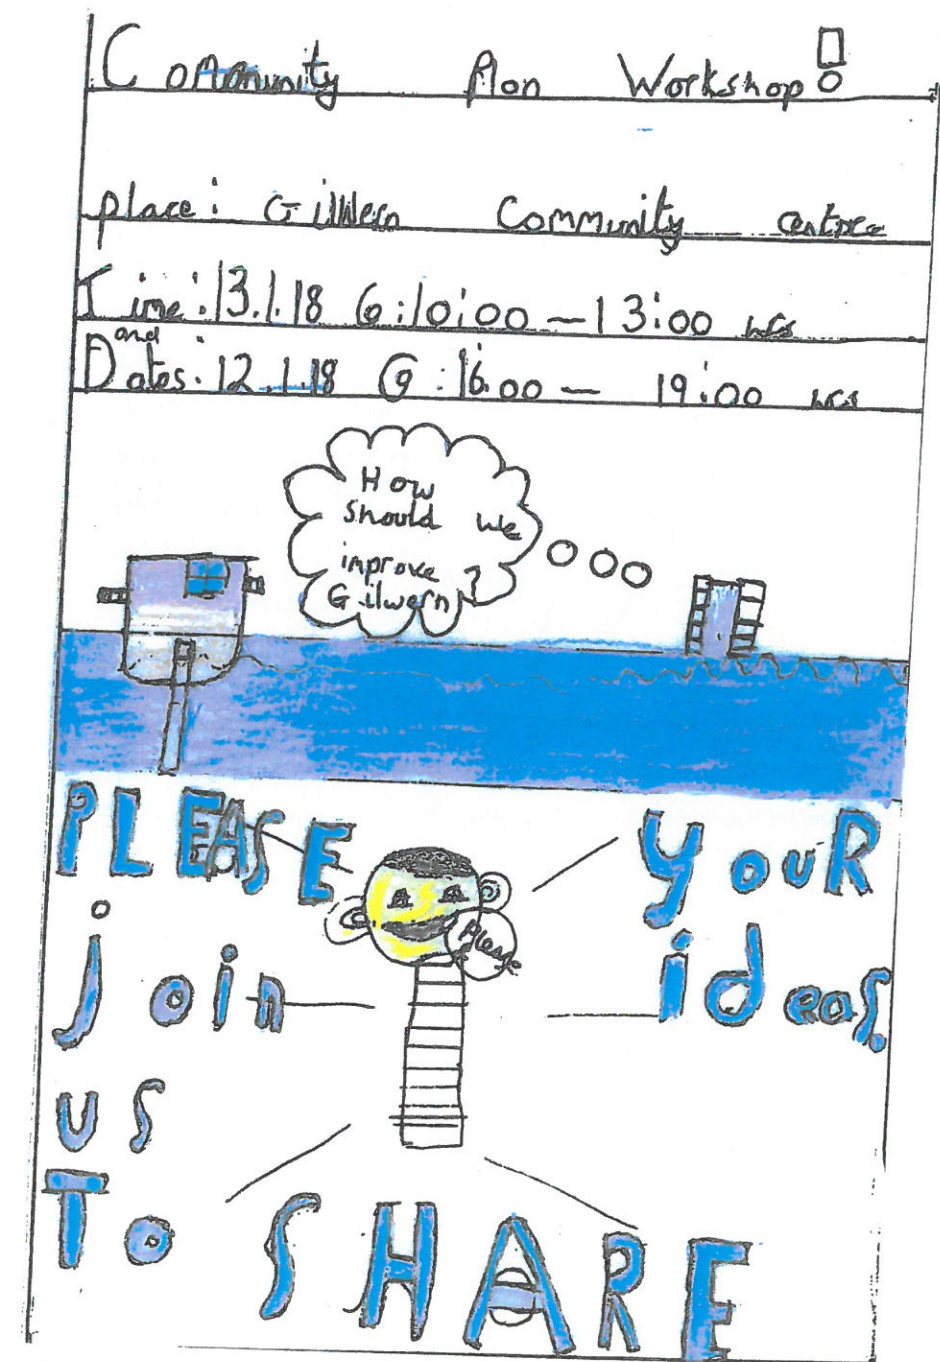 Community Plan Workshop!
place: Gilwern Community centre
Time: 13.1.18 @:10:00 - 13:00 hrs
and
Dates: 12.1.18 @:16:00 - 19:00 hrs
How
should we
improve
Gilwern?
PLEASE
join
us
To SHARE
YouR
ideas.
Please